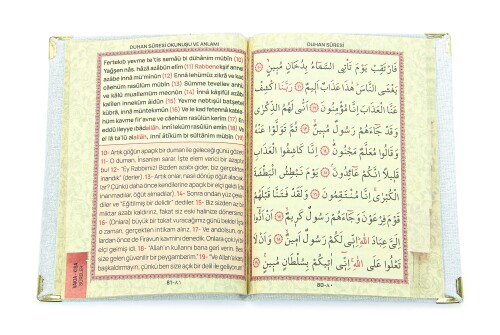 DUHAN SÛRESİ OKUNUŞU VE ANLAMI
Fertekıb yevme te'tis semâü bi duhânim mübîn (10)
Yağşen nâs, hâzâ azâbün elîm (11) Rabbenekşif annel
azâbe innâ mü'minûn (12) Ennâ lehümüz zikrâ ve kad
câehüm rasûlüm mübîn (13) Sümme tevellev anhü
ve kâlû muallemüm mecnûn (14) İnnâ kâşifül azâbi
kalîlen inneküm âidûn (15) Yevme nebtışül batşetel
kübrâ, innâ müntekımûn (16) Ve le kad fetennâ kablehüm
kavme fir'avne ve câehüm rasûlün kerîm (17) En
eddû ileyye ıbâdallâh, innî leküm rasûlün emîn (18) Ve
el lâ ta'lû alallâh, innî âtîküm bi sültânim mübîn (19)
10- Artık göğün apaçık bir duman ile geleceği günü gözet.
11- O duman, insanları sarar. İşte elem verici bir azaptır
bu! 12- "Ey Rabbimiz! Bizden azabı gider, biz gerçekten
inandık" (derler). 13- Artık onlar, nasıl dönüp öğüt alacaklar?
Çünkü daha önce kendilerine apaçık bir elçi geldi de
14- Sonra ondan yüz çevirdiler
ve "Eğitilmiş bir delidir" dediler. 15- Biz sizden azabı
miktar azala kaldırırız, fakat siz eski halinize dönersiniz.
16- (Onlara) büyük bir fakat vuracağımız günü bekle! İşte
o zaman, gerçekten intikam alırız. 17- Ve andolsun, onlardan
önce de Firavun kavmini denedik. Onlara çok şerefli
bir elçi gelmişti. 18- "Allah'ın kullarını bana geri verin. Ben
size gelen güvenilir bir peygamberim." 19- "Ve Allah'a karşı
başkaldırmayın; çünkü ben size açık bir delil ile geliyorum."
81-٨١
DUHAN SÛRESİ
فَارْتَقِبْ يَوْمَ تَأْتِى السَّمَاءُ بِدُخَانٍ مُبِينٍ ﴿١٠﴾
يَغْشَى النَّاسَ هٰذَا عَذَابٌ اَلِيمٌ ﴿١١﴾ رَبَّنَا اكْشِفْ
عَنَّا الْعَذَابَ اِنَّا مُؤْمِنُونَ ﴿١٢﴾ اَنّٰى لَهُمُ الذِّكْرٰى
وَقَدْ جَاءَهُمْ رَسُولٌ مُبِينٌ ﴿١٣﴾ ثُمَّ تَوَلَّوْا عَنْهُ
وَقَالُوا مُعَلَّمٌ مَجْنُونٌ ﴿١٤﴾ اِنَّا كَاشِفُوا الْعَذَابِ
قَلِيلًا اِنَّكُمْ عَائِدُونَ ﴿١٥﴾ يَوْمَ نَبْطِشُ الْبَطْشَةَ
الْكُبْرٰى اِنَّا مُنْتَقِمُونَ ﴿١٦﴾ وَلَقَدْ فَتَنَّا قَبْلَهُمْ
قَوْمَ فِرْعَوْنَ وَجَاءَهُمْ رَسُولٌ كَرِيمٌ ﴿١٧﴾ اَنْ اَدُّوا
اِلَىَّ عِبَادَ اللّٰهِ اِنِّى لَكُمْ رَسُولٌ اَمِينٌ ﴿١٨﴾ وَاَنْ لَا
تَعْلُوا عَلَى اللّٰهِ اِنِّى اٰتِيكُمْ بِسُلْطَانٍ مُبِينٍ ﴿١٩﴾
80-٨٠